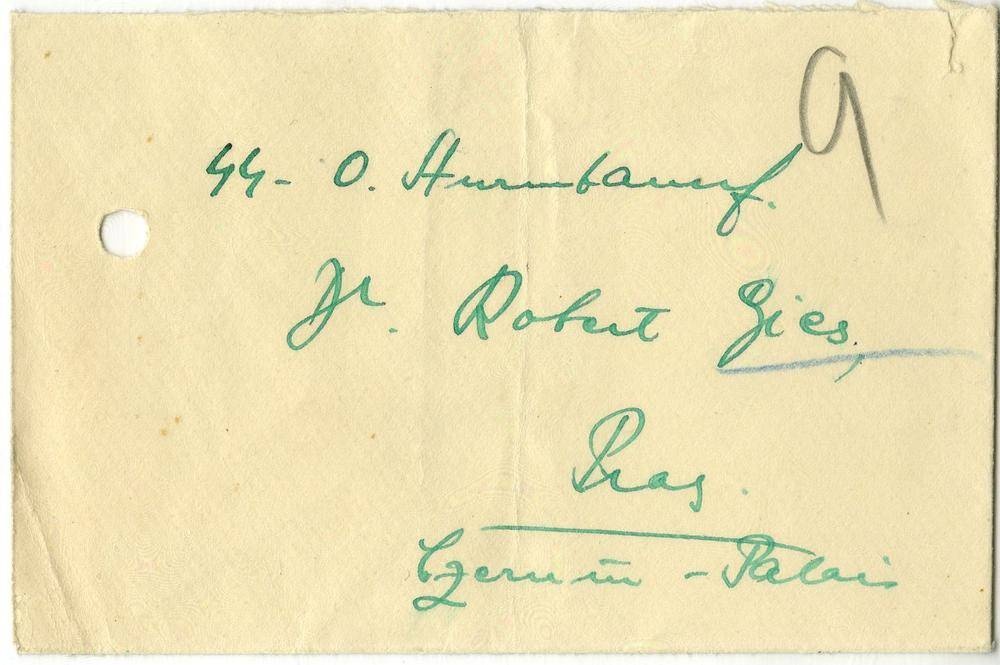 9
SS-O. Sturmbannf.
Dr. Robert Gies,
Prag.
Czernin-Palais